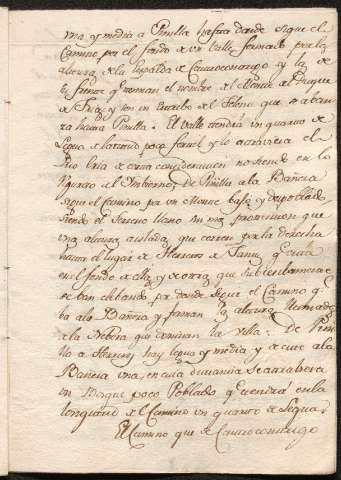 una y media a Pinilla hasta donde sigue el
Camino por el fondo de un Valle formado por la
altura de la espalda de Castrocontrigo y la de
su frente q.e toman el nombre de Monte del Duque
de y son un Estribo del Teleno que se aban
za hacia Pinilla. El Valle tendrá un quarto de
Legua de latitud poco feraz y lo atraviesa el
Rio Eria de corta consideracion no siendo en lo
riguroso del Imbierno; de Pinilla a la Bañeza
sigue el Camino por un Monte bajo, y despoblado
siendo el terreno llano sin mas prominencia que
una altura aislada que corren por la derecha
hacia el lugar de Herreros de Jamuz q.e está
en el fondo de ella y otras que subcesibamente
se ban elebando por donde sigue el Camino q.e
ba a la Bañeza y forman las alturas llamadas
de la que dominan la villa: De Pini
lla a Herreros hay legua y media y de este a la
Bañeza una, en cuia distancia se atrabiesa
un Bosque poco Poblado q.e tendrá en la
longitud de el Camino un quarto de Legua.
El camino que de Castrocontrigo